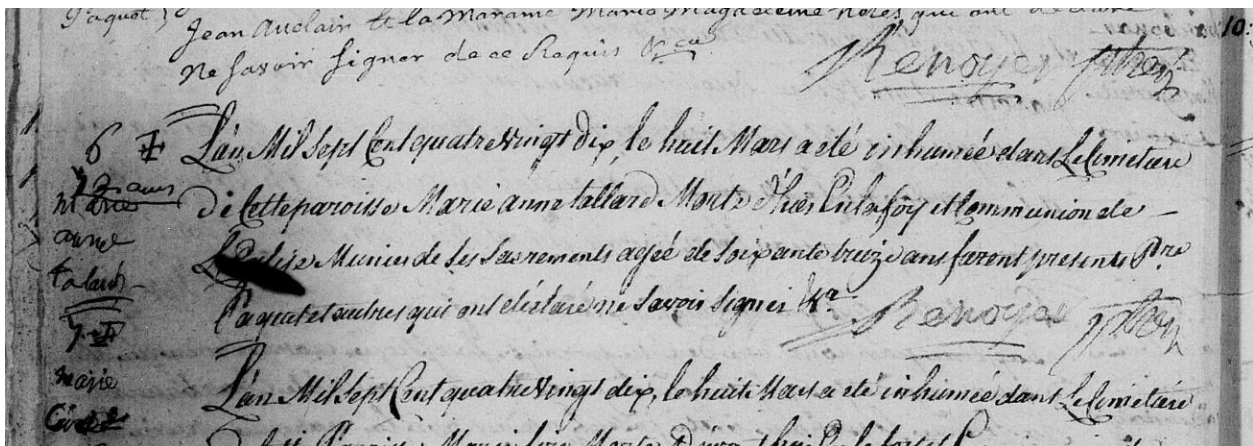 Jean Auclair & la Marame Marie Magdeleine qui ont
Ne Savoir Signer de ce Requis &ca
Renoyer ptre
10
6 L'an Mil Sept Cent quatre Vingt dix, le huit Mars a eté inhumée dans Le Cimetiere
De Cette paroisse Marie anne tallard Morte d'hier En la foy et Communion de
L'Eglise Munies de Ses Sacrements agée de Soixante treize ans furent presents Pre
Paquet et autres qui ont déclaré ne Savoir Signer &a Renoyer ptre
73 ans
Marie
anne
talard
7
Marie
L'an Mil Sept Cent quatre Vingt dix, le huit Mars a eté inhumée dans Le Cimetiere